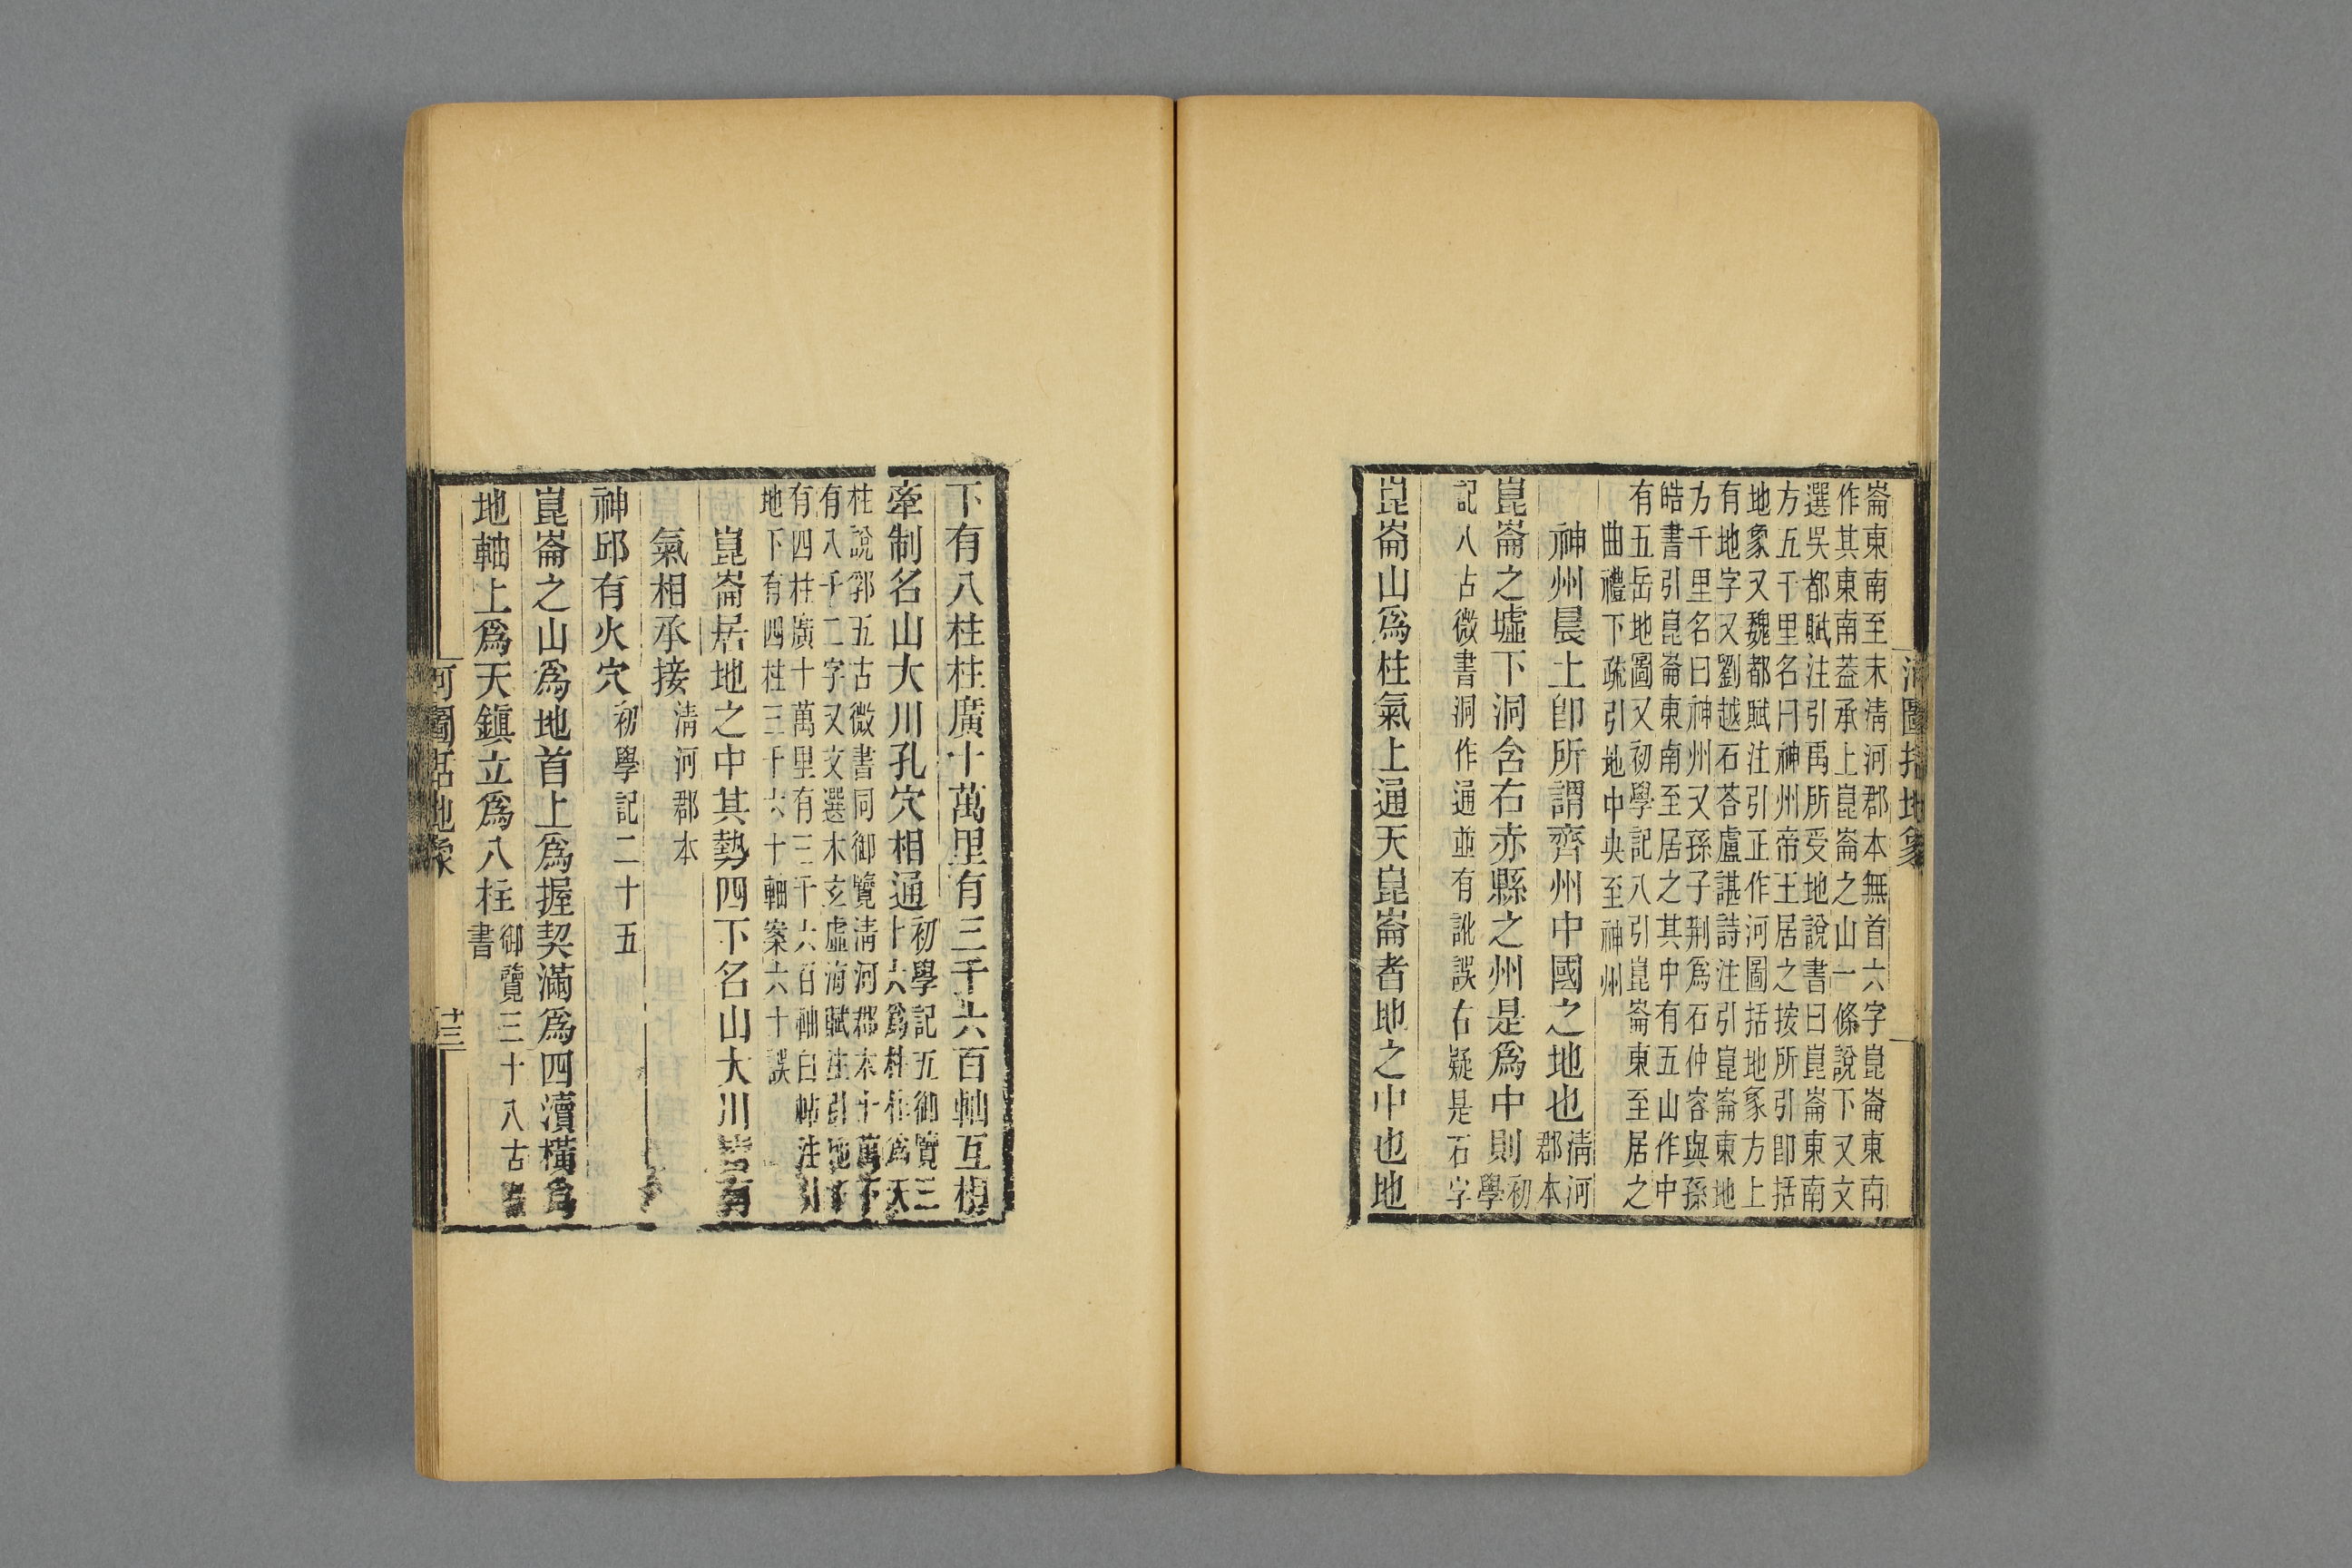 河圖括地象
崙東南至末淸河郡本無首六字崑崙東南
作其東南蓋承上崑崙之山一條說下又文
選吳都賦注引禹所受地說書曰崑崙東南
方五千里名曰神州帝王居之按所引卽括
地象又魏都賦注引正作河圖括地象方上
有地字又劉越石荅盧諶詩注引崑崙東地
方千里名曰神州又孫子荆爲石仲容與孫
皓書引崑崙東南至居之其中有五山作中
有五岳地圖又初學記八引崑崙東至居之
曲禮下疏引地中央至神州
神州晨土卽所謂齊州中國之地也淸河
郡本
崑崙之墟下洞含右赤縣之州是爲中則初
學
記八古微書洞作通並有訛誤右疑是石字
崑崙山爲柱氣上通天崑崙者地之中也地
下有八柱柱廣十萬里有三千六百軸互相
牽制名山大川孔穴相通初學記五御覽三
十六爲柱作爲天
柱說郛五古微書同御覽淸河郡本十萬下
有八千二字又文選木玄虛海賦注引地下
有四柱廣十萬里有三千六百軸白帖注引
地下有四柱三千六十軸案六十誤
崑崙居地之中其勢四下名山大川皆有
氣相承接淸河郡本
神邱有火穴初學記二十五
崑崙之山爲地首上爲握契滿爲四瀆橫爲
地軸上爲天鎭立爲八柱御覽三十八古微
書
河圖括地象
十三